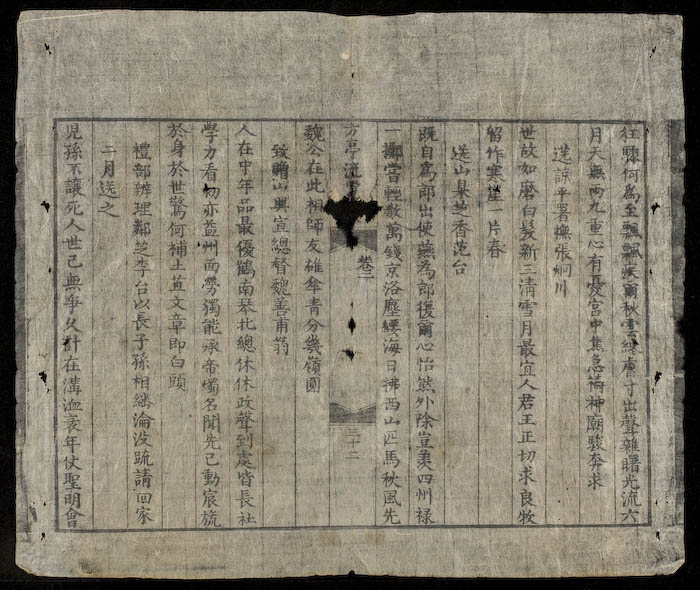 往驟何為至飄飄疾爾秋雲總膚寸出聲雜曙光流六
月天無兩九重心有憂宮中焦急禱神廟駿奔求
送諒平署撫張炯川
世故如磨白髮新三清雪月最宜人君王正切求良牧
留作寒崖一片春
送山梟芝香范台
既自為郎出使藩為郎復爾心怡然外除豈羨四州祿
一擲當輕數萬錢京洛塵纓海日拂西山匹馬秋風先
方亭流
卷二
三十二
魏公在此相師友雄傘青分幾嶺圓
致贈山興宣總督魏善甫翁
人在中年品最優鶴南琴北總休休政聲到處皆長社
學力看初亦益州面勞獨能承帝燭名聞先已動宸旒
於身於世驚何補土苴文章即白頭
禮部辨理鄰芝李台以長子孫相繼淪沒疏請回家
二月送之
兒孫不讓死人世已無爭久計在溝洫衰年仗聖明會